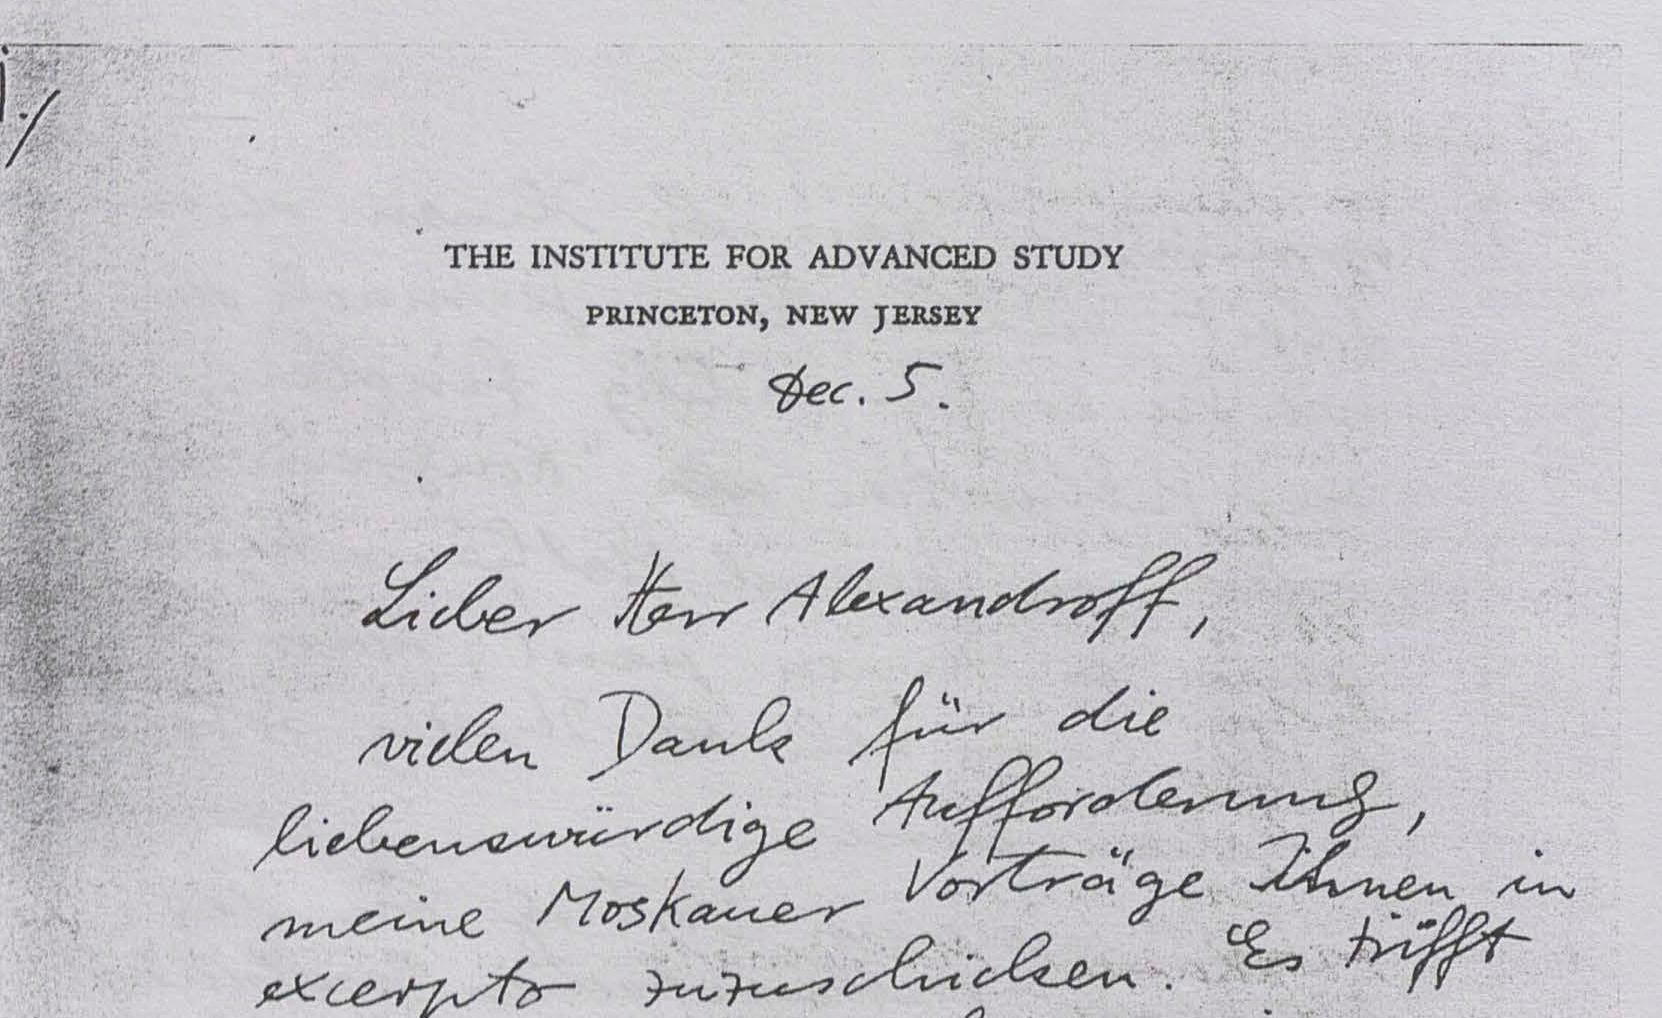 1./
THE INSTITUTE FOR ADVANCED STUDY
PRINCETON, NEW JERSEY
Dec. 5.
Lieber Herr Alexandroff,
vielen Dank für die
liebenswürdige Aufforderung,
meine Moskauer Vorträge Ihnen in
excerpto zuzuschicken. Es trifft